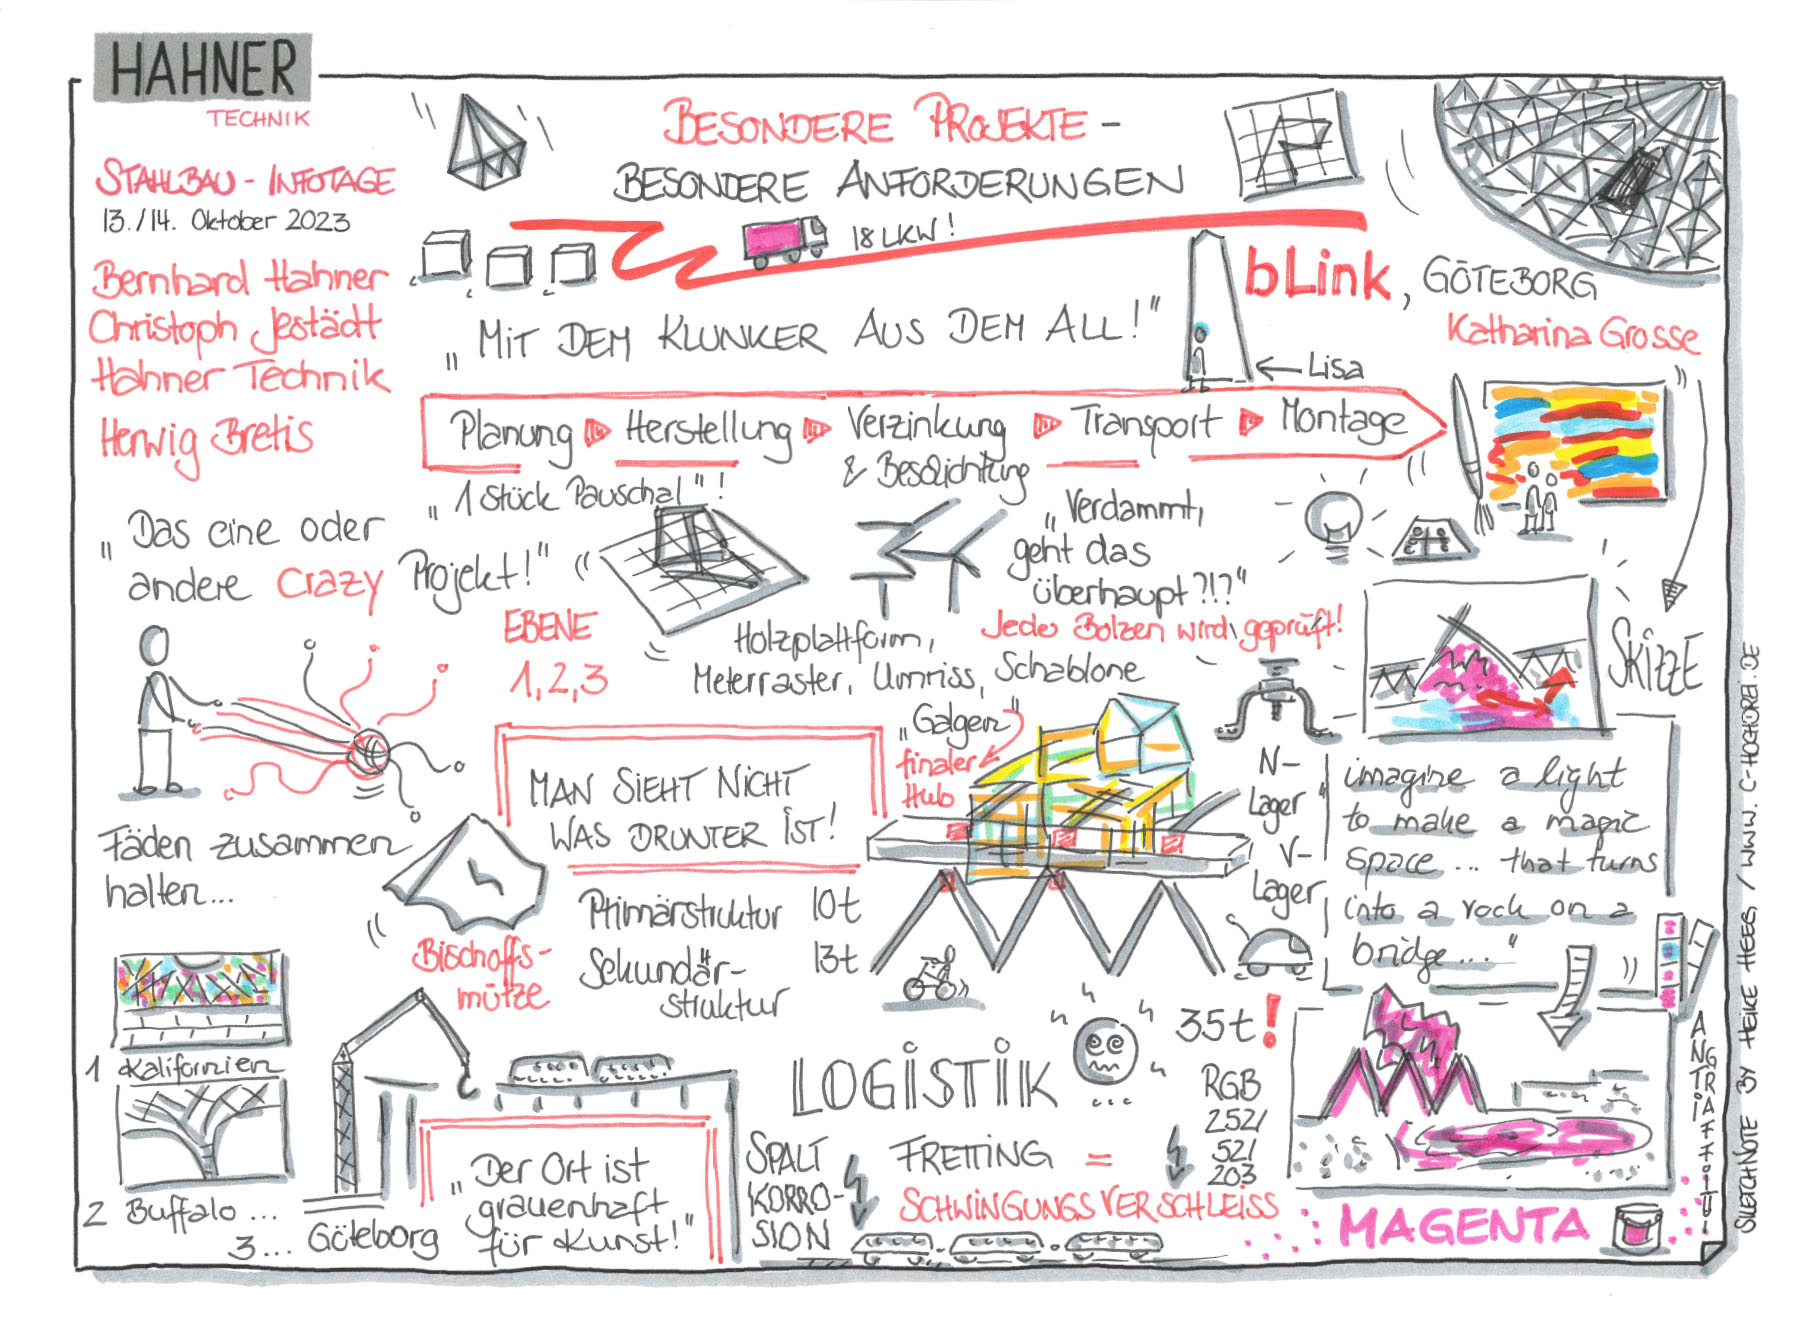 HAHNER
TECHNIK
STAHLBAU - INFOTAGE
13./14. Oktober 2023
Bernhard Hahner
Christoph Jestädt
Hahner Technik
Herwig Bretis
BESONDERE PROJEKTE -
BESONDERE ANFORDERUNGEN
18 LKW!
„MIT DEM KLUNKER AUS DEM ALL!"
bLink, GÖTEBORG
Katharina Grosse
Lisa
Planung Herstellung Verzinkung Transport Montage
& Beschichtung
„1 Stück Pauschal"!
„Das eine oder
andere crazy Projekt!"
„Verdammt,
geht das
überhaupt?!?"
EBENE
1, 2, 3
Holzplattform,
Meterraster, Umriss, Schablone
Jeder Bolzen wird geprüft!
SKIZZE
„Galgen"
finaler
Hub
MAN SIEHT NICHT
WAS DRUNTER IST!
N-
Lager
V-
Lager
„imagine a light
to make a magic
space... that turns
into a rock on a
bridge..."
Fäden zusammen
halten...
Bischoffs-
mütze
Primärstruktur 10t
Sekundär- 13t
struktur
1 Kalifornien
2 Buffalo ...
3...
Göteborg
„Der Ort ist
grauenhaft
für Kunst!"
LOGISTIK
...
35t!
RGB
252/
52/
203
SPALT
KORRO-
SION
FRETTING =
SCHWINGUNGSVERSCHLEISS
MAGENTA
ANTI
GRAFFITI!
SKETCHNOTE BY HEIKE HEES / WWW.C-HOCHDREI.DE